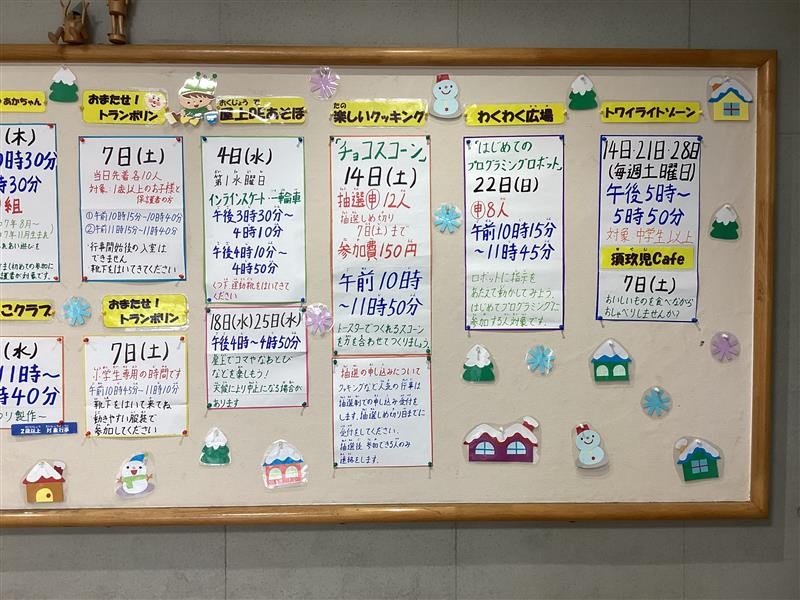 あかちゃん
(木)
9時30分
30分
組
7年8月〜
7年11月生まれ
(水)
11時〜
40分
2歳以上 対象行事
おまたせ!
トランポリン
7日(土)
当日先着各10人
対象:1歳以上のお子様と
保護者の方
①午前10時15分〜10時40分
②午前11時15分〜11時40分
・行事開始後の入室は
できません
靴下をはいてきてください
おまたせ!
トランポリン
7日(土)
小学生専用の時間です
午前10時45分〜11時10分
靴下をはいて来てね
動きやすい服装で
参加してください
おくじょうで
屋上DEあそぼ
4日(水)
第1水曜日
インラインスケート・一輪車
午後3時30分〜
4時10分
午後4時10分〜
4時50分
くつ下、運動靴をはいてきて
ください
18日(水)25日(水)
午後4時〜4時50分
屋上でコマやなわとび
などを楽しもう!
天候により中止になる場合が
あります
楽しいクッキング
「チョコスコーン」
14日(土)
抽選申12人
抽選しめ切り
7日(土)まで
参加費150円
午前10時
〜11時50分
トースターでつくれるスコーン
を力を合わせてつくりましょう
抽選の申し込みについて
クッキングなど人気の行事は
抽選制での申し込み受付を
します。抽選しめ切り日までに
受付をしてください。
抽選後、参加できる人のみ
連絡をします。
わくわく広場
「はじめての
プログラミングロボット」
22日(日)
申8人
午前10時15分
〜11時45分
ロボットに指示を
あたえて動かしてみよう。
はじめてプログラミングに
参加する人対象です。
トワイライトゾーン
14日・21日・28日
(毎週土曜日)
午後5時〜
5時50分
対象 中学生以上
須玖児Cafe
7日(土)
おいしいものを食べながら
おしゃべりしませんか?